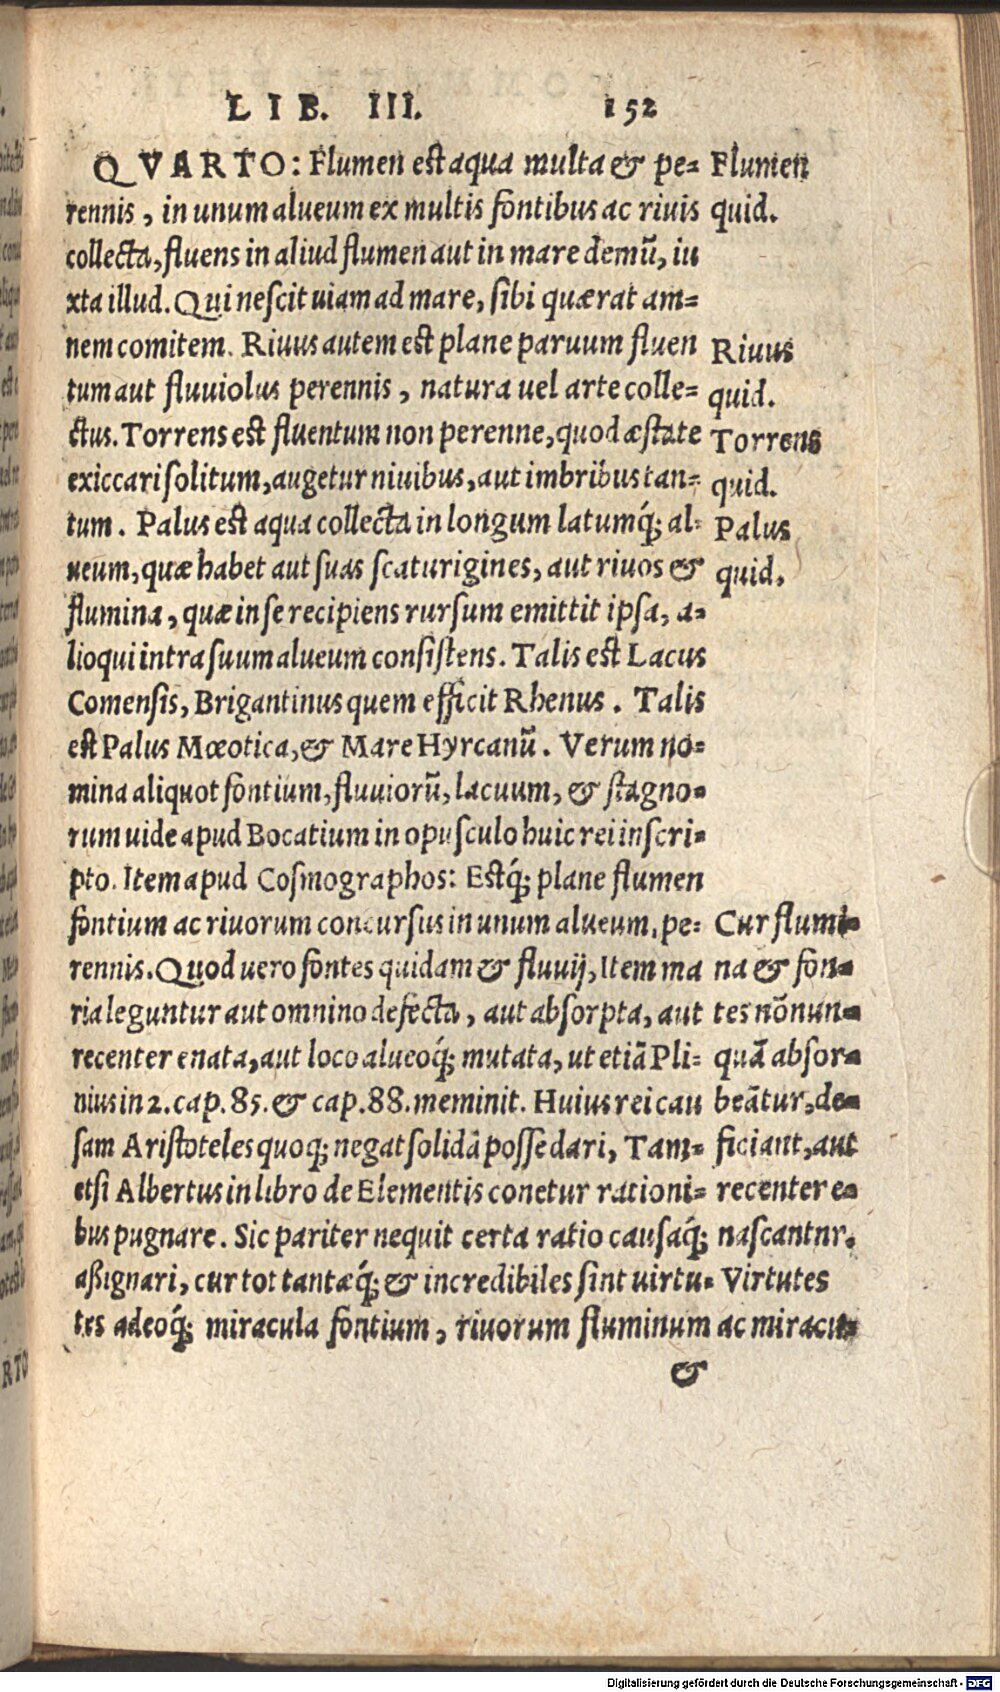 LIB. III. 152
QVARTO: Flumen est aqua multa & pe=
rennis, in unum alueum ex multis fontibus ac riuis
collecta, fluens in aliud flumen aut in mare demũ, iu
xta illud. Qui nescit uiam ad mare, sibi quærat am=
nem comitem. Riuus autem est plane paruum fluen
tum aut fluuiolus perennis, natura uel arte colle=
ctus. Torrens est fluentum non perenne, quod æstate
exiccari solitum, augetur niuibus, aut imbribus tan=
tum. Palus est aqua collecta in longum latumq́; al=
ueum, quæ habet aut suas scaturigines, aut riuos &
flumina, quæ in se recipiens rursum emittit ipsa, a=
lioqui intra suum alueum consistens. Talis est Lacus
Comensis, Brigantinus quem efficit Rhenus. Talis
est Palus Mœotica, & Mare Hyrcanũ. Verum no=
mina aliquot fontium, fluuiorũ, lacuum, & stagno=
rum uide apud Bocatium in opusculo huic rei inscri=
pto. Item apud Cosmographos: Estq́; plane flumen
fontium ac riuorum concursus in unum alueum, pe=
rennis. Quod uero fontes quidam & fluuij, Item ma
ria leguntur aut omnino defecta, aut absorpta, aut
recenter enata, aut loco alueoq́; mutata, ut etiã Pli=
nius in 2. cap. 85. & cap. 88. meminit. Huius rei cau
sam Aristoteles quoq; negat solidã posse dari, Tam=
etsi Albertus in libro de Elementis conetur rationi=
bus pugnare. Sic pariter nequit certa ratio causaq́;
aßignari, cur tot tantæq́; & incredibiles sint uirtu=
tes adeoq́; miracula fontium, riuorum fluminum
&
Flumen
quid.
Riuus
quid.
Torrens
quid.
Palus
quid.
Cur flumi=
na & fon=
tes nõnun=
quã absor=
beãtur, de=
ficiant, aut
recenter e=
nascantnr.
Virtutes
ac miracu=
Digitalisierung gefördert durch die Deutsche Forschungsgemeinschaft - DFG